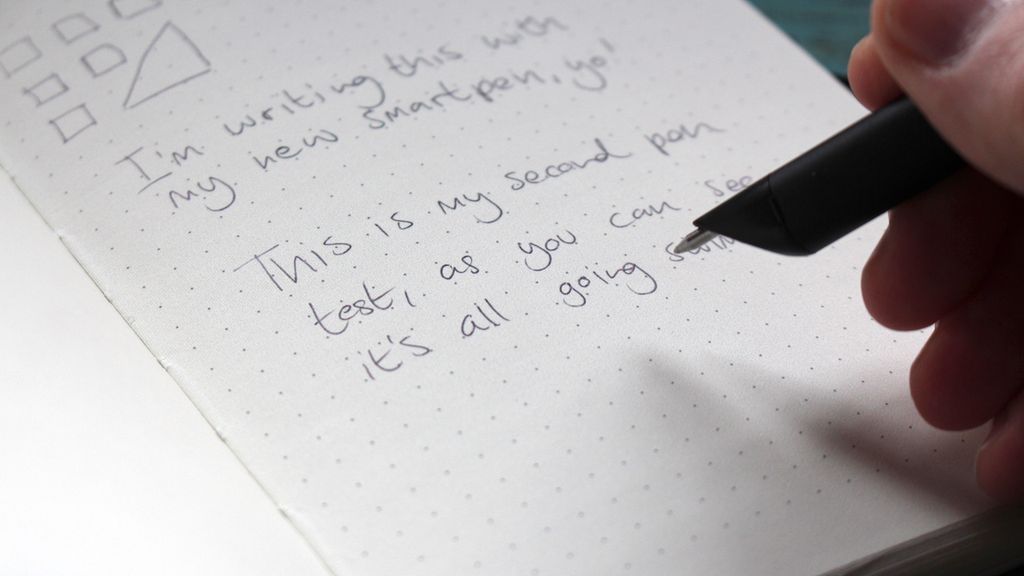 I'm writing this with
my new smartpen, yo'
This is my second pen
test, as you can see
it's all going